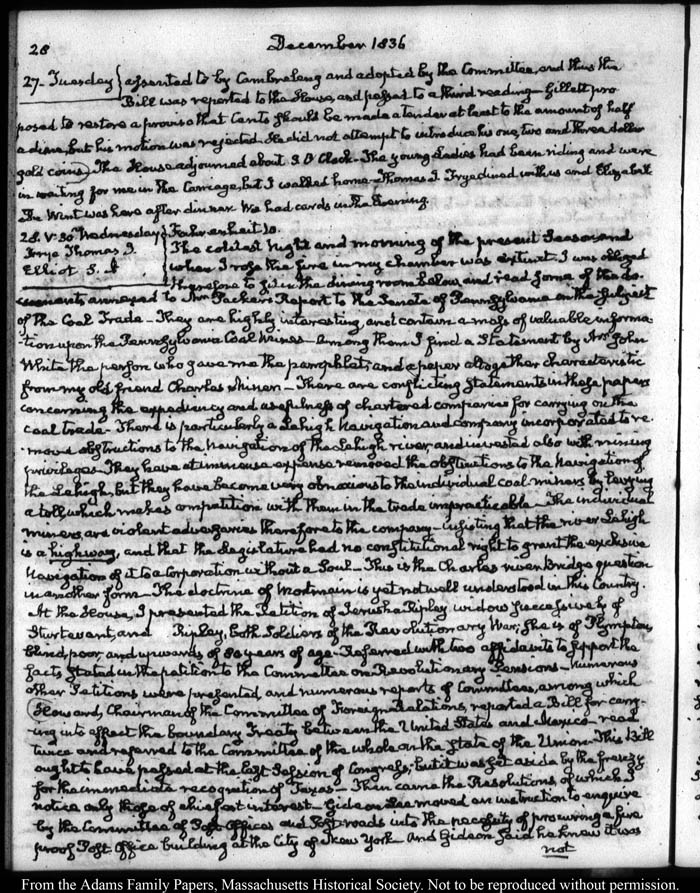 28 December 1836
27. Tuesday } assented to by Cambreleng and adopted by the Committee, and thus the
Bill was reported to the House, and passed to a third reading — Gillett pro
posed to restore a proviso that Cents should be made a tender at least to the amount of half
a dime, but his motion was rejected. He did not attempt to introduce his one, two and three dollar
gold coins. The House adjourned about 3. O Clock — The young Ladies had been riding and were
in waiting for me in the Carriage, but I walked home — Thomas J. Frye dined with us and Elizabeth
De Wint was here after dinner. We had cards in the Evening.
28. V. 30 Wednesday } Fahrenheit 10.
Frye Thomas J. The coldest night and morning of the present Season and
Elliot S. A when I rose the fire in my chamber was extinct. I was obliged
therefore to in the dining room below, and read some of the do-
cuments annexed to Mr Packer's Report to the Senate of Pennsylvania on the subject
of the Coal Trade — They are highly interesting, and contain a mass of valuable informa
tion upon the Pennsylvania Coal Mines — among them I find a Statement by Mr John
White the person who gave me the pamphlet; and a paper altogether characteristic
from my old friend Charles Miner — There are conflicting statements in these papers
concerning the expediency and usefulness of chartered companies for carrying on the
coal trade — There is particularly a Lehigh Navigation and company incorporated to re-
move obstructions to the Navigation of the Lehigh river, and invested also with mining
privileges. They have at immense expense removed the obstructions to the Navigation of
the Lehigh, but they have become very obnoxious to the individual coal miners by levying
a toll, which makes competition with them in the trade impracticable — The individual
miners, are violent adversaries therefore to the company — insisting that the river Lehigh
is a highway, and that the Legislature had no constitutional right to grant the exclusive
Navigation of it to a Corporation without a Soul — This is the Charles river Bridge question
in another form — The doctrine of Mortmain is yet not well understood in this Country.
At the House, I presented the Petition of Jerusha Ripley widow successively of
Sturtevant, and Ripley, both Soldiers of the Revolutionary War; she is of Plympton,
blind, poor, and upwards of 80 years of age — Referred with two affidavits to support the
facts stated in the petition to the Committee on Revolutionary Pensions — Numerous
other Petitions were presented, and numerous reports of Committees, among which
Howard, Chairman of the Committee of Foreign Relations, reported a Bill for carry-
ing into effect the boundary Treaty between the United States and Mexico — read
twice and referred to the Committee of the whole on the State of the Union. This Bill
ought to have passed at the last Session of Congress; but it was set aside by the frenzy
for the immediate recognition of Texas — Then came the Resolutions, of which I
notice only those of chief interest — Gideon Lee moved an instruction to enquire
by the Committee of Post Offices and Post roads into the necessity of procuring a fire
proof Post Office building at the City of New York — And Gideon said he knew it was
not
From the Adams Family Papers, Massachusetts Historical Society. Not to be reproduced without permission.